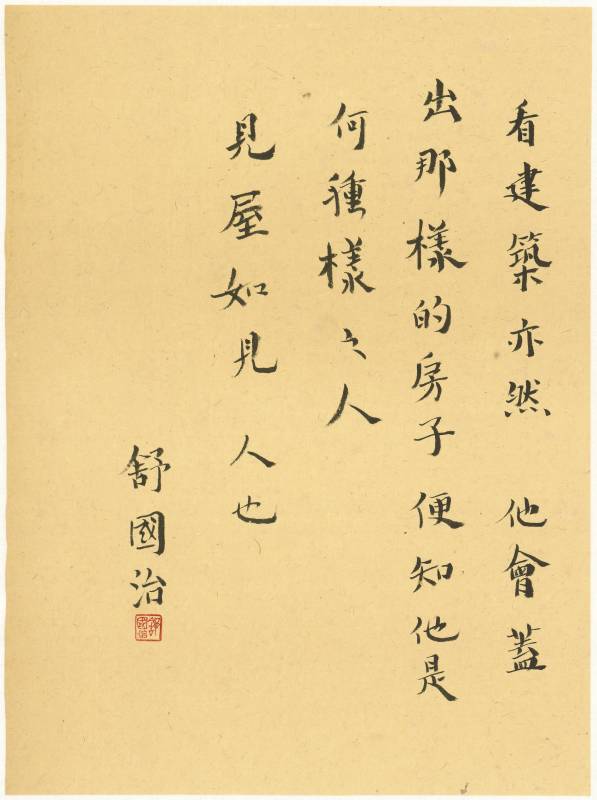 看建築亦然　他會蓋
出那樣的房子　便知他是
何種樣之人
見屋如見　人也
舒國治
舒國治